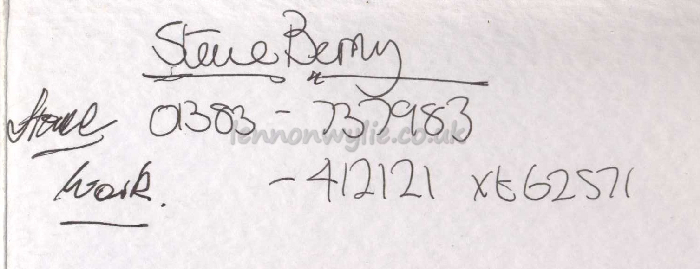 Steve Berry
Home 01383 - 737983
lennonwylie.co.uk
Work. - 412121 xt 62571